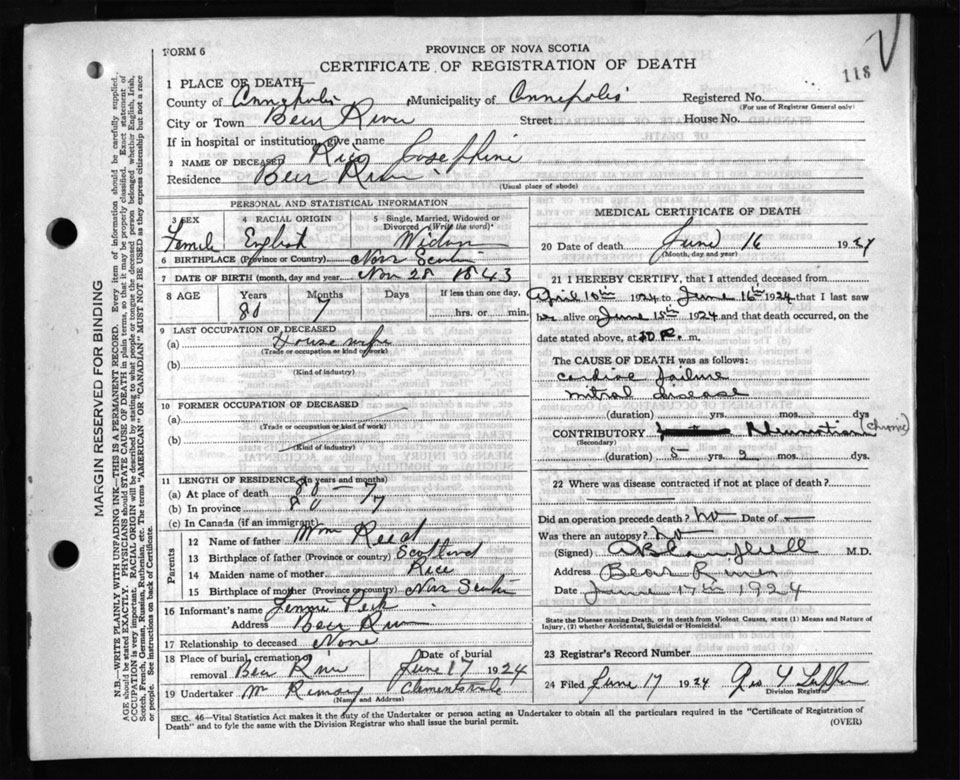 FORM 6
PROVINCE OF NOVA SCOTIA
CERTIFICATE OF REGISTRATION OF DEATH
118
1 PLACE OF DEATH—
County of Annapolis Municipality of Annapolis Registered No.
(For use of Registrar General only)
City or Town Bear River Street House No.
If in hospital or institution, give name
2 NAME OF DECEASED Rice Josephine
Residence Bear River
(Usual place of abode)
PERSONAL AND STATISTICAL INFORMATION
3 SEX 4 RACIAL ORIGIN 5 Single, Married, Widowed or Divorced (Write the word)
Female English Widow
6 BIRTHPLACE (Province or Country) Nova Scotia
7 DATE OF BIRTH (month, day and year) Nov 28 1843
8 AGE Years Months Days If less than one day,
80 7 hrs. or min.
9 LAST OCCUPATION OF DECEASED
(a) House wife
(Trade or occupation or kind of work)
(b)
(Kind of industry)
10 FORMER OCCUPATION OF DECEASED
(a)
(Trade or occupation or kind of work)
(b)
(Kind of industry)
11 LENGTH OF RESIDENCE (in years and months)
(a) At place of death 80 - 7
(b) In province 80 7
(c) In Canada (if an immigrant)
Parents
12 Name of father Wm Reed
13 Birthplace of father (Province or country) Scotland
14 Maiden name of mother Rice
15 Birthplace of mother (Province or country) Nova Scotia
16 Informant's name Peck
Address Bear River
17 Relationship to deceased None
18 Place of burial, cremation or removal Bear River Date of burial June 17 1924
19 Undertaker Clementsvale
(Name and Address)
MEDICAL CERTIFICATE OF DEATH
20 Date of death June 16 1924
(Month, day and year)
21 I HEREBY CERTIFY, that I attended deceased from
April 10th 1924 to June 16th 1924 that I last saw
her alive on June 15th 1924 and that death occurred, on
date stated above, at m.
The CAUSE OF DEATH was as follows:
cardiac failure
mitral disease
(duration) yrs. mos. dys
CONTRIBUTORY Rheumatism (Chronic)
(Secondary)
(duration) 5 yrs. 2 mos. dys
22 Where was disease contracted if not at place of death?
Did an operation precede death? no Date of —
Was there an autopsy? no
(Signed) Campbell M.D.
Address Bear River
Date June 17th 1924
State the Disease causing Death, or in death from Violent Causes, state (1) Means and Nature of Injury, (2) whether Accidental, Suicidal or Homicidal.
23 Registrar's Record Number
24 Filed June 17 1924 Geo
Division Registrar
SEC. 46—Vital Statistics Act makes it the duty of the Undertaker or person acting as Undertaker to obtain all the particulars required in the "Certificate of Registration of
Death" and to fyle the same with the Division Registrar who shall issue the burial permit.
(OVER)
MARGIN RESERVED FOR BINDING
N.B.—WRITE PLAINLY WITH UNFADING INK—THIS IS A PERMANENT RECORD. Every item of information should be carefully supplied.
AGE should be stated EXACTLY. PHYSICIANS should STATE CAUSE OF DEATH in plain terms, so that it may be properly classified. Exact statement of
OCCUPATION is very important. RACIAL ORIGIN will be described by stating to what people or tongue the deceased person belonged whether English, Irish,
Scotch, French, German, Russian, Ruthenian, etc. The terms "AMERICAN" OR "CANADIAN" MUST NOT BE USED as they express citizenship but not a race
or people. See instructions on back of Certificate.